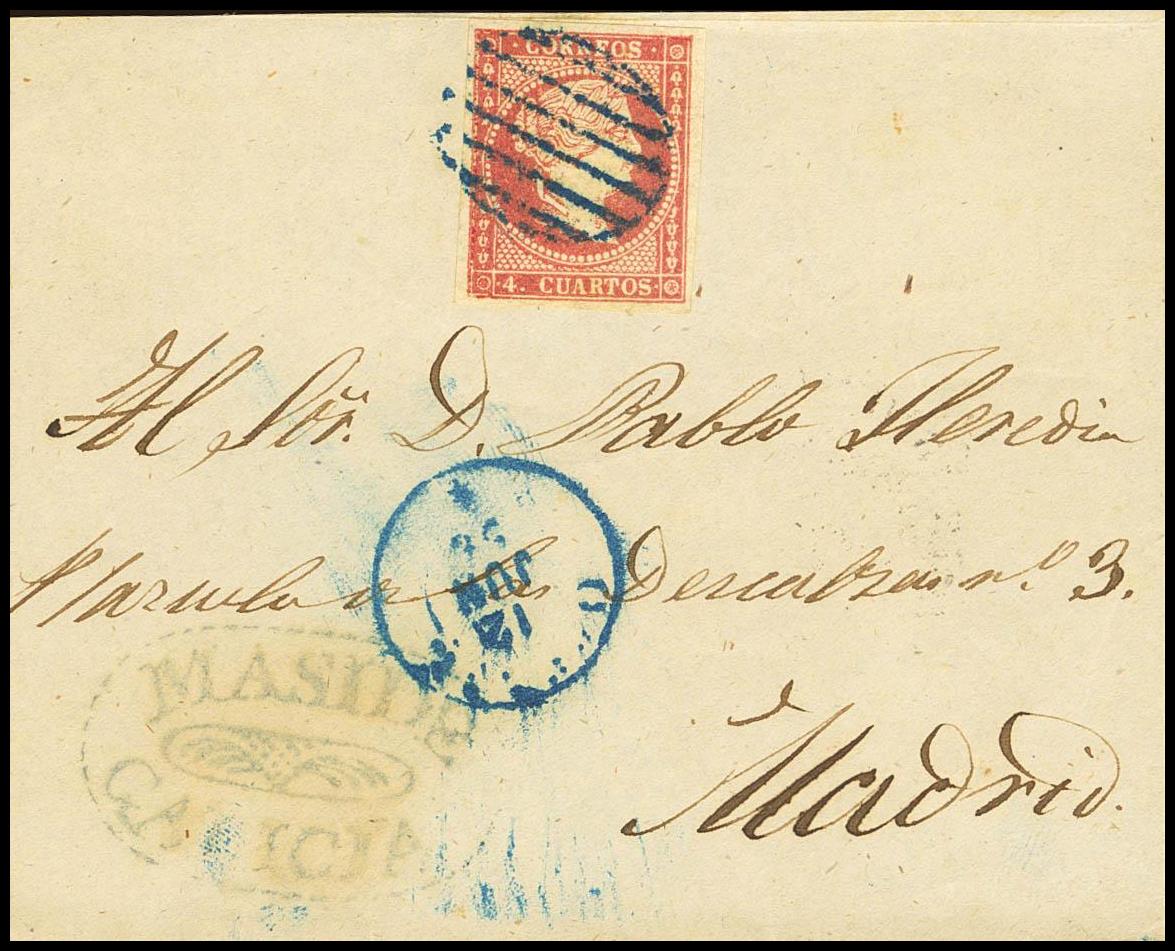 CORREOS
4. CUARTOS
Al Sõr. D. Pablo Heredia
Plazuela de las Descalzas nº 3.
12
JUN
Madrid.
MASIDE
GALICIA